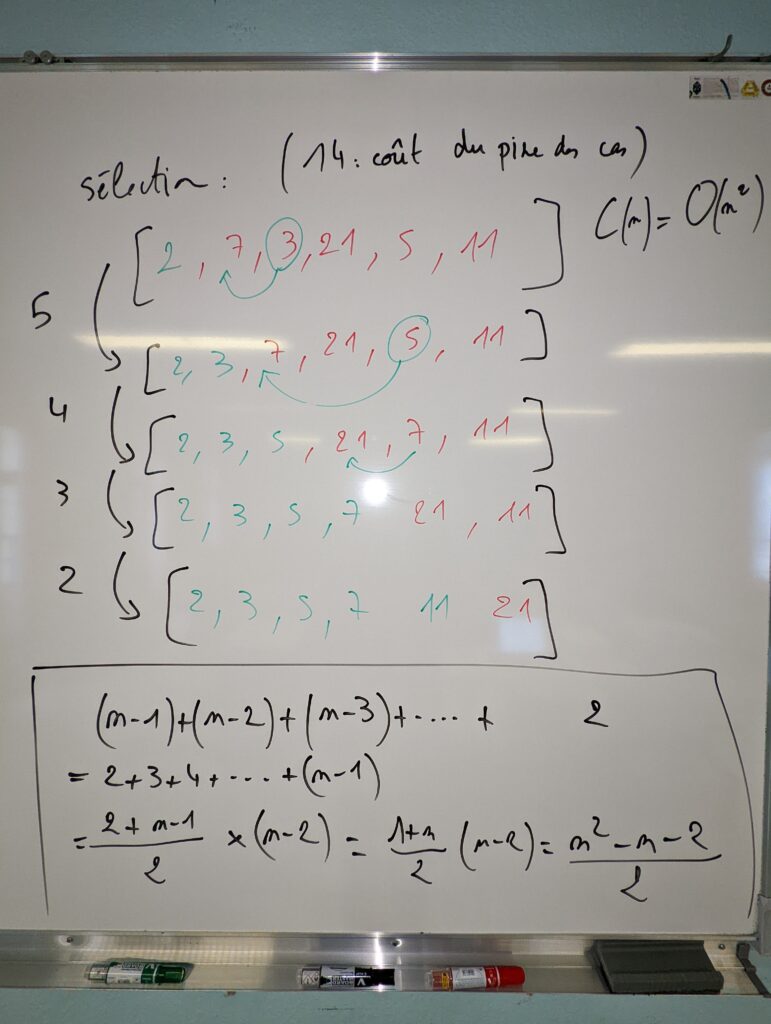 sélection : (14 : coût du pire des cas)
C(n) = O(n²)
[2, 7, 3, 21, 5, 11]
5
[2, 3, 7, 21, 5, 11]
4
[2, 3, 5, 21, 7, 11]
3
[2, 3, 5, 7 21, 11]
2
[2, 3, 5, 7 11 21]
(n-1)+(n-2)+(n-3)+....+ 2
= 2+3+4+....+(n-1)
= \frac{2+n-1}{2} × (n-2) = \frac{1+n}{2} (n-2) = \frac{n²-n-2}{2}